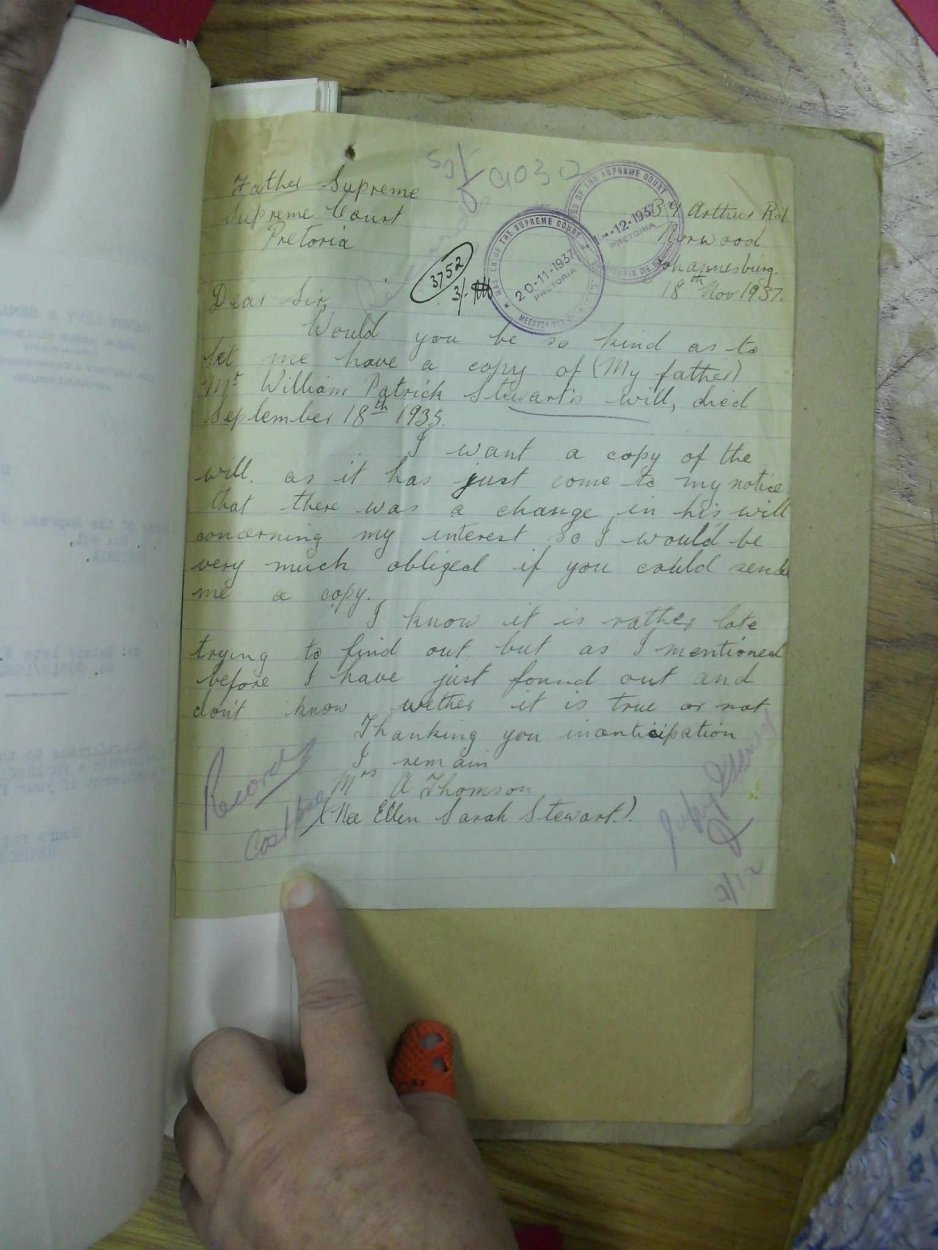 Father Supreme
Supreme Court
Pretoria
Arthur Rd
Norwood
Johannesburg.
18th Nov 1937.
3752
3/.
MASTER OF THE SUPREME COURT
20-11-1937
PRETORIA
MEESTER
OF THE SUPREME COURT
-12-1937
PRETORIA
Dear Sir,
Would you be so kind as to
let me have a copy of (My father)
Mr William Patrick Stewart's will, died
September 18th 1935.
I want a copy of the
will. as it has just come to my notice
that there was a change in his will
concerning my interest so I would be
very much obliged if you could send
me a copy.
I know it is rather late
trying to find out, but as I mentioned
before I have just found out and
don't know wether it is true or not
Thanking you inanticipation
I remain
Mrs A Thomson
(Nee Ellen Sarah Stewart.)
Record